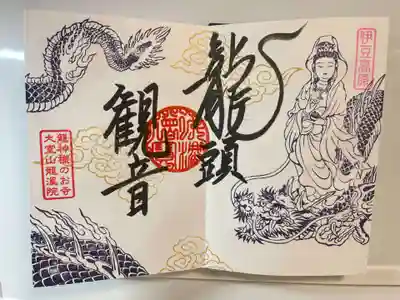 伊豆高原
龍頭
観音
龍神様のお寺
大室山龍溪院